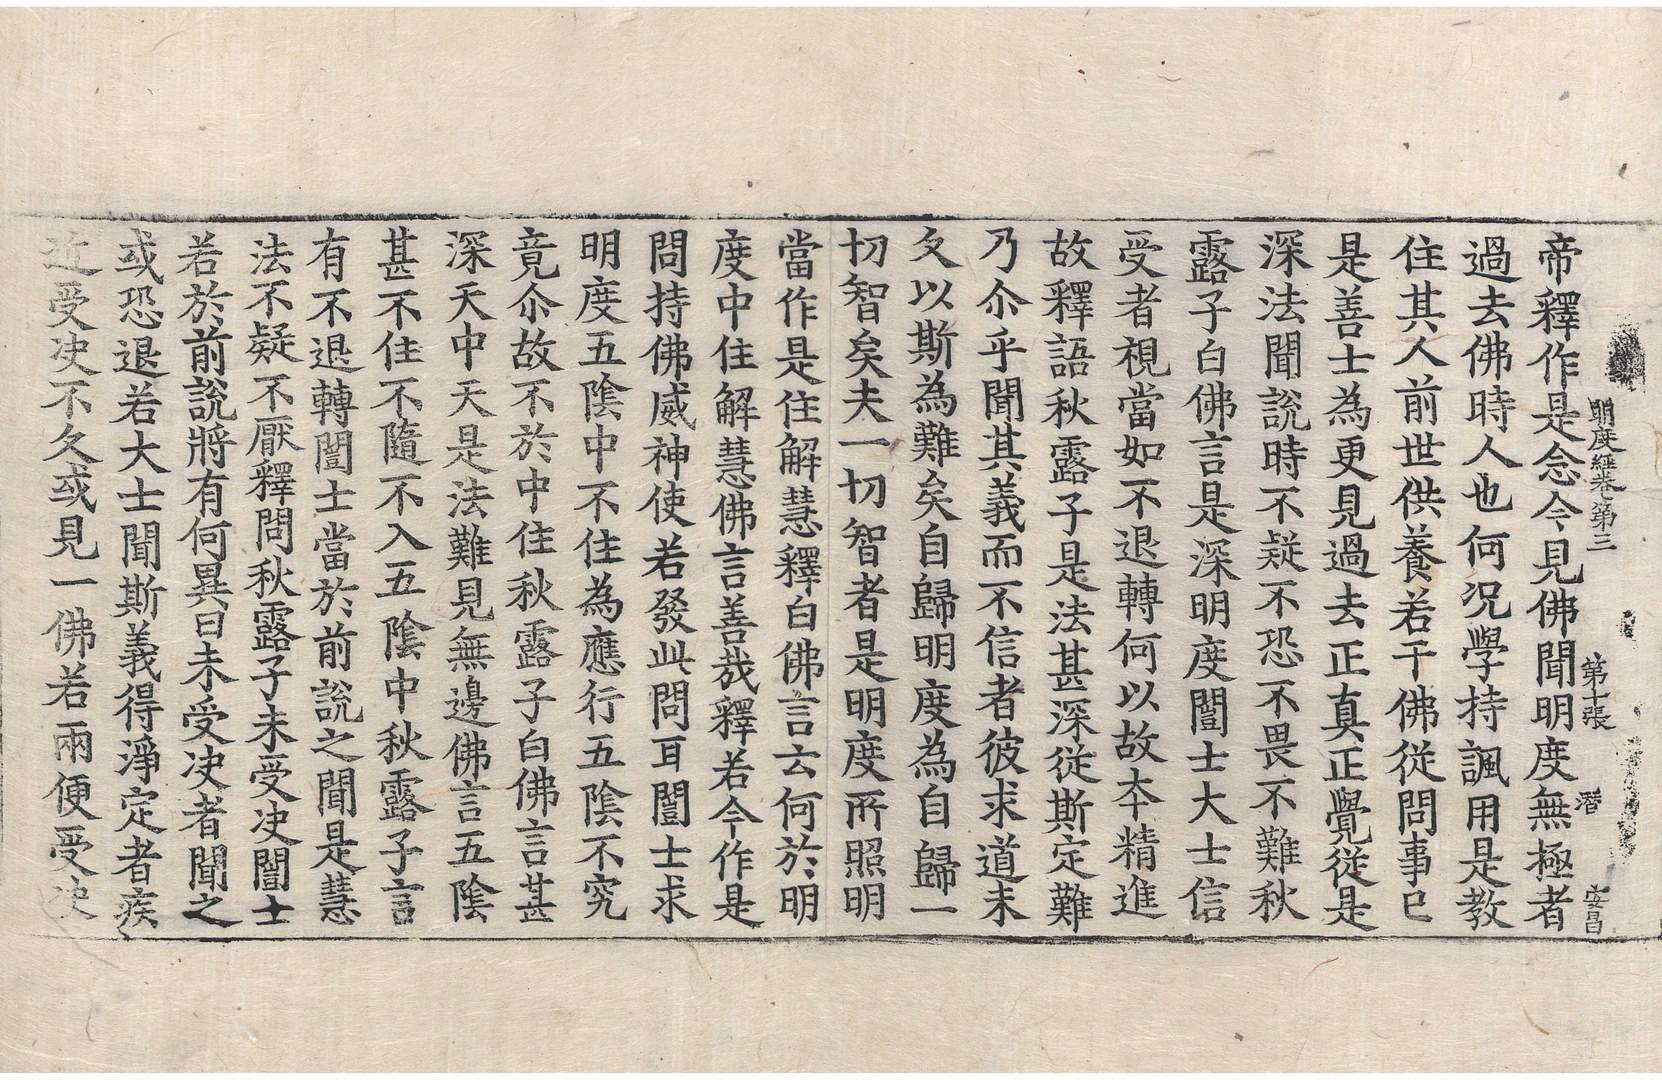 明度経卷第三 第十張 潛 安昌
帝釋作是念今見佛聞明度無極者
過去佛時人也何況學持諷用是教
住其人前世供養若干佛從問事已
是善士為更見過去正真正覺從是
深法聞說時不疑不恐不畏不難秋
露子白佛言是深明度闓士大士信
受者視當如不退轉何以故夲精進
故釋語秋露子是法甚深從斯定難
乃尒乎聞其義而不信者彼求道未
久以斯為難矣自歸明度為自歸一
切智矣夫一切智者是明度所照明
當作是住解慧釋白佛言云何於明
度中住解慧佛言善哉釋若今作是
問持佛威神使若發此問耳闓士求
明度五陰中不住為應行五陰不究
竟尒故不於中住秋露子白佛言甚
深天中天是法難見無邊佛言五陰
甚不住不隨不入五陰中秋露子言
有不退轉闓士當於前說之聞是慧
法不疑不厭釋問秋露子未受决闓士
若於前說將有何異曰未受决者聞之
或恐退若大士聞斯義得淨定者疾
近受决不久或見一佛若兩便受决